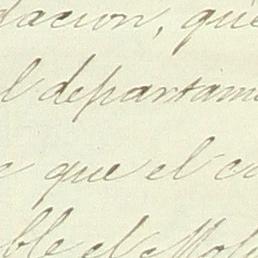 dacion, que
l departame
e que el c
ble el